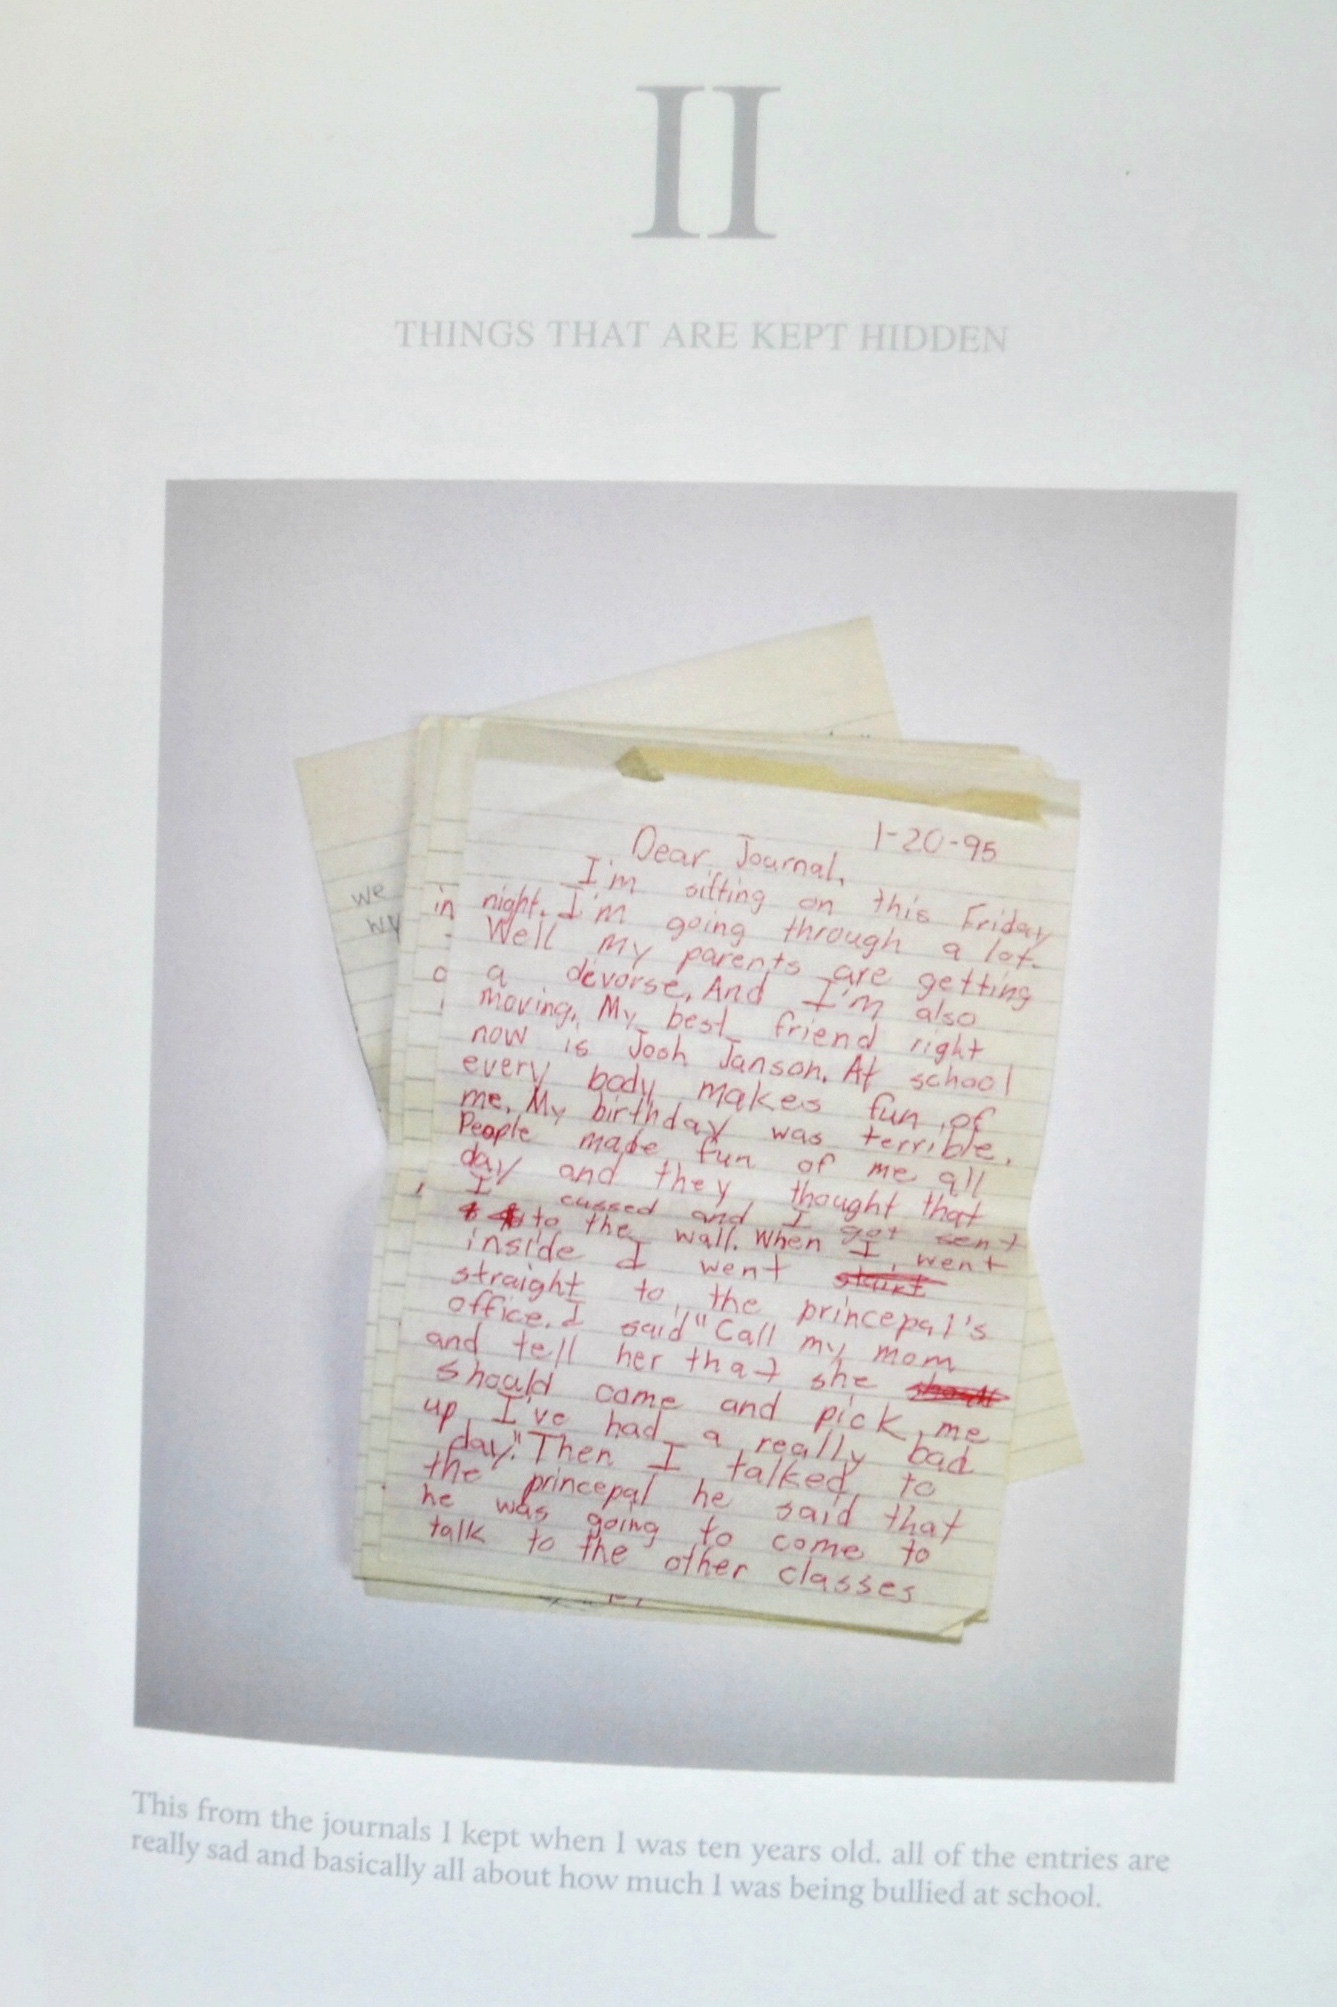 II
THINGS THAT ARE KEPT HIDDEN
1-20-95
Dear Journal,
I'm sitting on this Friday
night. I'm going through a lot.
Well my parents are getting
a devorse. And I'm also
moving. My best friend right
now is Josh Janson. At school
every body makes fun of
me. My birthday was terrible.
People made fun of me all
day and they thought that
I cussed and I got sent
to the wall. When I went
inside I went
straight to the princepal's
office. I said "Call my mom
and tell her that she
should come and pick me
up I've had a really bad
day." Then I talked to
the princepal he said that
he was going to come to
talk to the other classes
we
in
This from the journals I kept when I was ten years old. all of the entries are
really sad and basically all about how much I was being bullied at school.